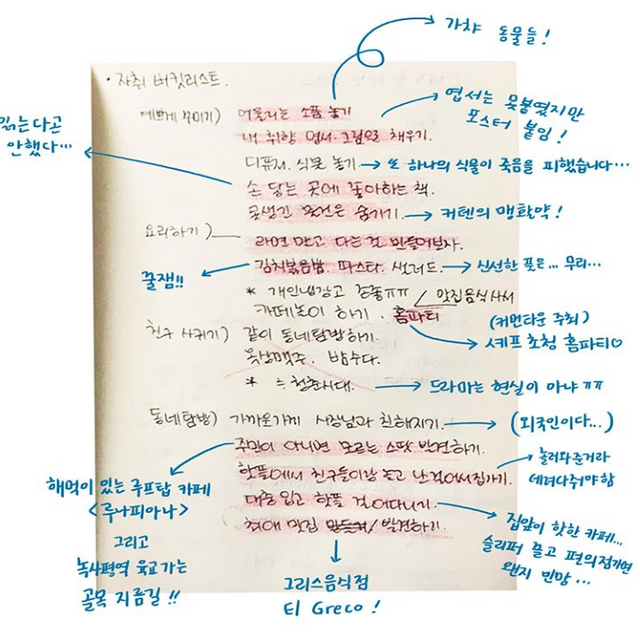 가챠 동물들!
• 자취 버킷리스트.
예쁘게 꾸미기) 어울리는 소품 놓기
엽서는 못붙였지만
포스터 붙임!
내 취향 엽서·그림으로 채우기.
읽는다고
안했다…
디퓨저, 식물 놓기 → 또 하나의 식물이 죽음을 피했습니다…
손 닿는 곳에 좋아하는 책.
못생긴 옷은 숨기기. → 커텐의 맹활약!
요리하기) 라면 말고 다른 것 만들어보자.
꿀잼!!
김치볶음밥, 파스타, 샐러드. → 신선한 풀은… 무리…
* 개인냉장고 ㅠㅠ / 맛집음식사서
카페놀이 하기. 홈파티
(커먼타운 주최)
셰프 초청 홈파티♡
친구 사귀기) 같이 동네탐방하기.
옥상맥주. 밤수다.
* ≒ 청춘시대. → 드라마는 현실이 아냐 ㅠㅠ
동네탐방) 가까운가게 사장님과 친해지기. → (외국인이다…)
주민이 아니면 모르는 스팟 발견하기.
핫플에서 친구들이랑 놀고 난 걸어서집가기.
놀러와준거라
데려다줘야함
해먹이 있는 루프탑 카페
<루나피아나>
그리고
녹사평역 육교 가는
골목 지름길!!
대충 입고 핫플 걸어다니기.
집앞이 핫한 카페…
슬리퍼 끌고 편의점가면
왠지 민망…
최애 맛집 만들기/발견하기.
그리스음식점
El Greco!